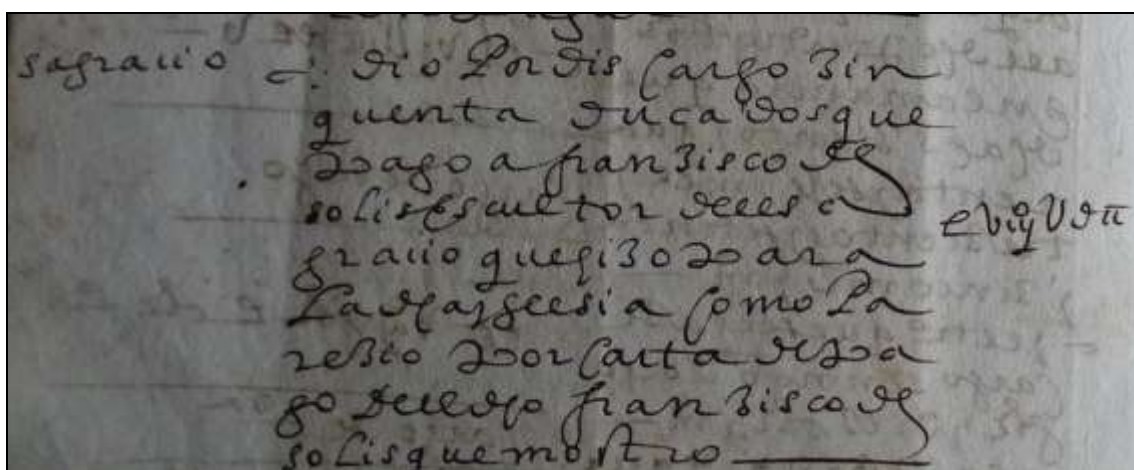 sagrario dio Por dis cargo zin
quenta ducados que
pago a franzisco de
solis escultor del sa
grario que hizo para
la dha yglesia como Pa
rezio por carta de pa
go del dho franzisco de
solis que mostro